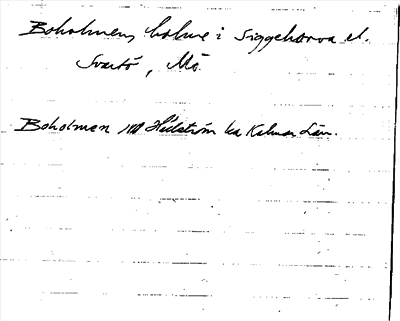 Boholmen, holme i Siggehorva el.
Svartö, Mö.
Boholmen Hédström ka Kalmar Län.